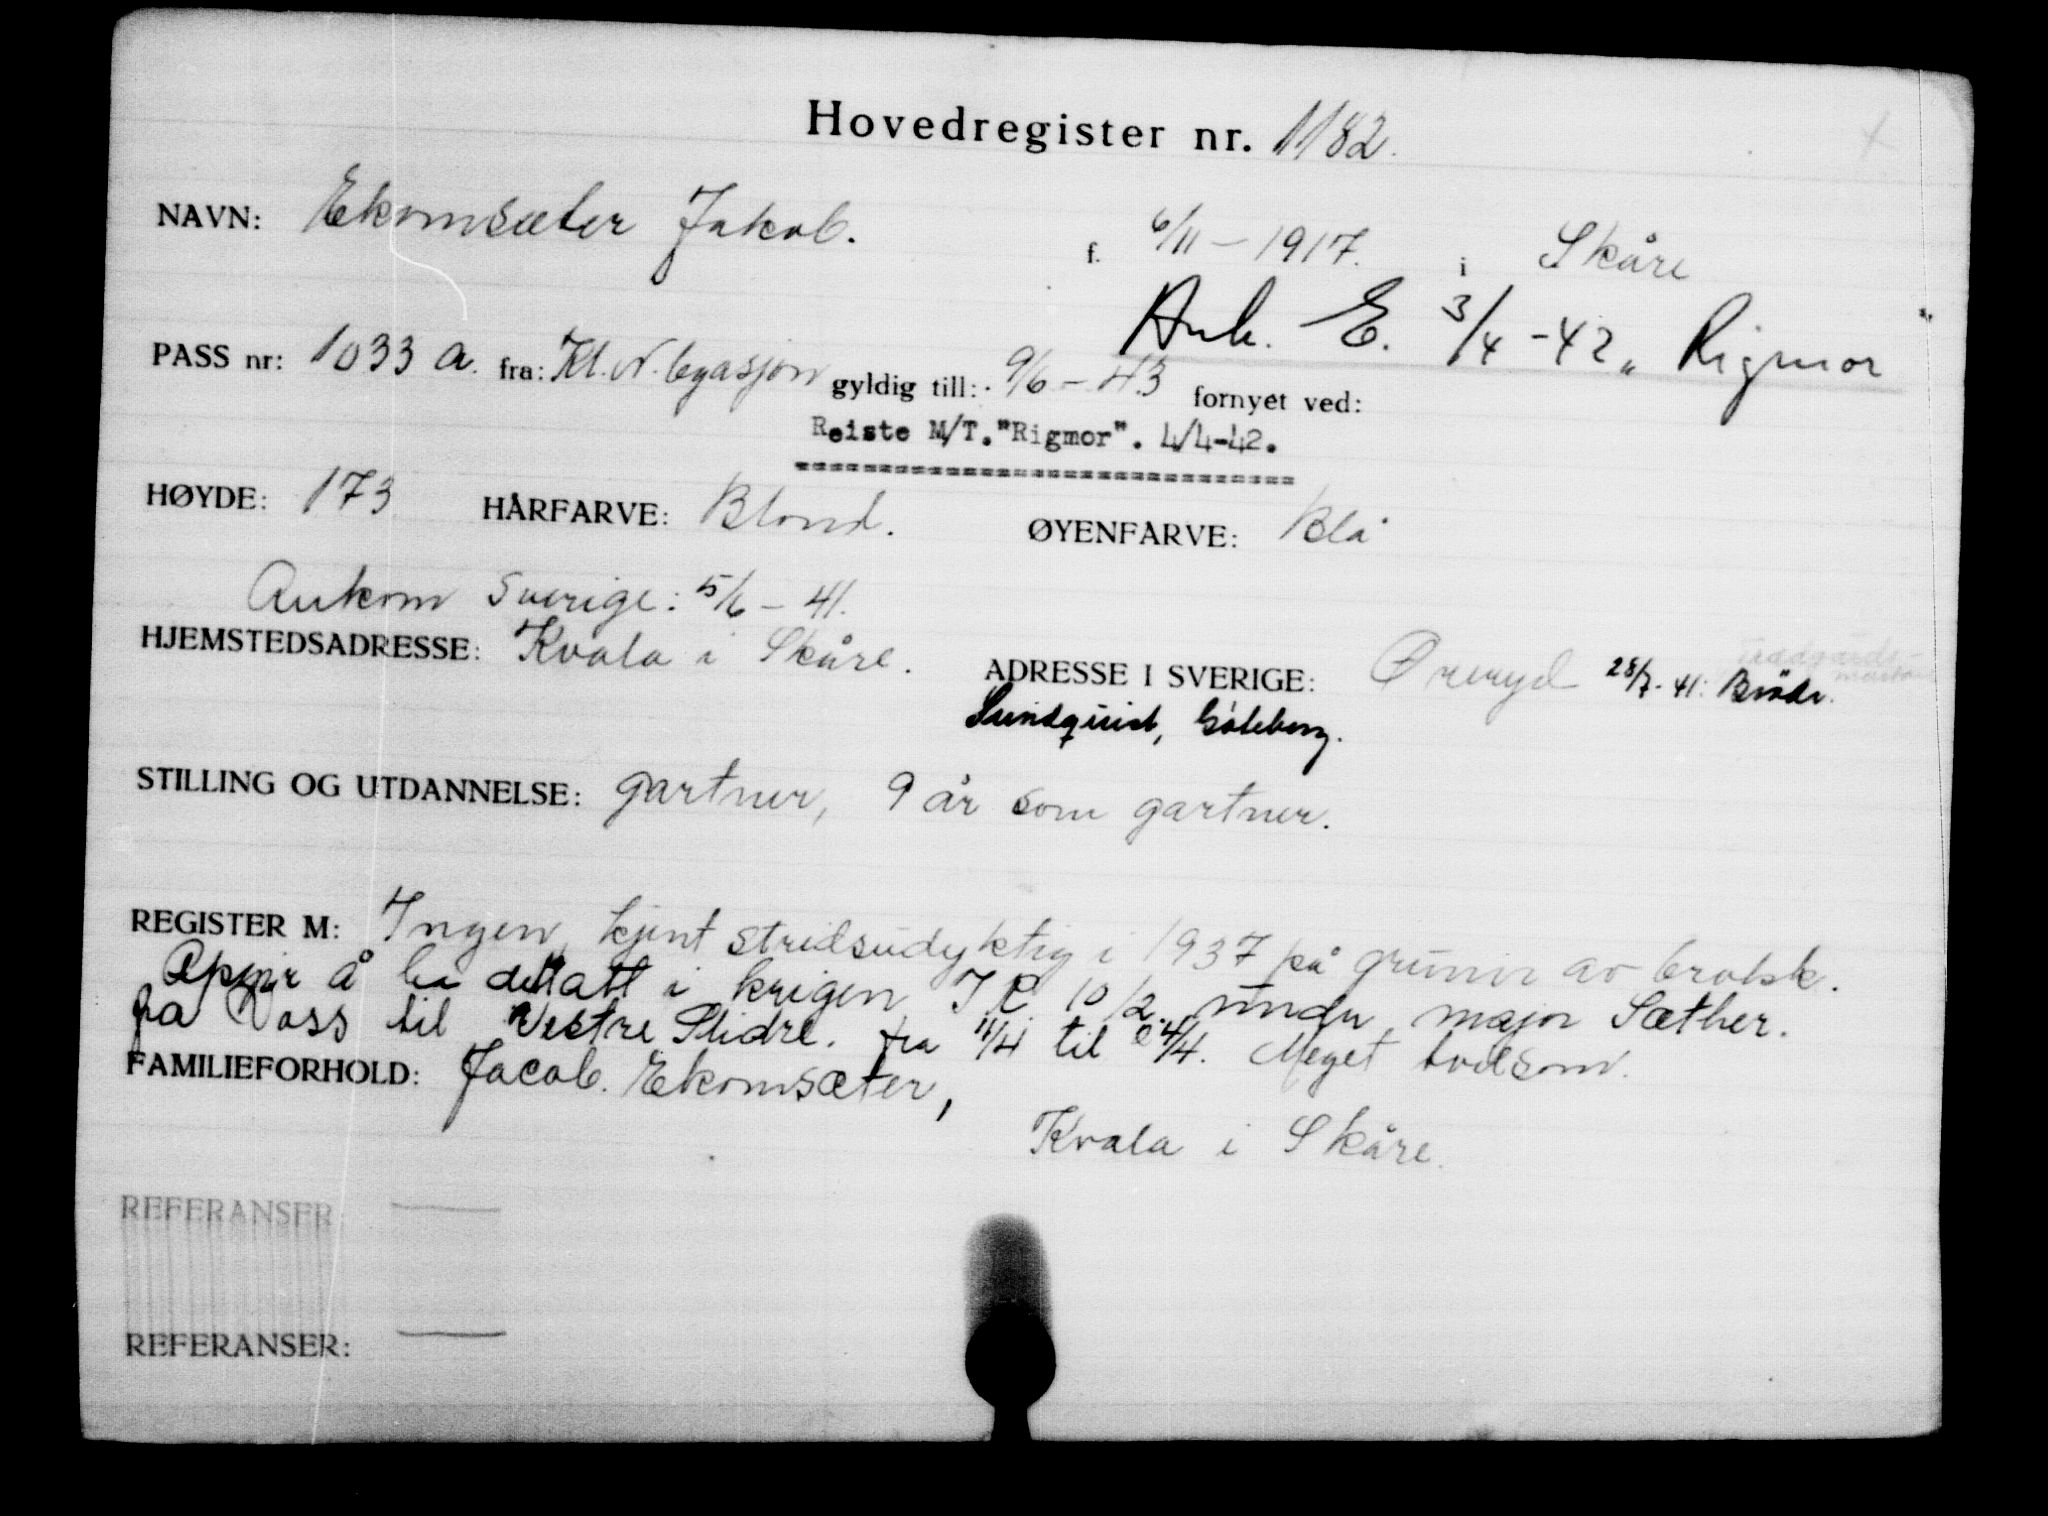 Hovedregister nr. 1182.
NAVN: Ekornsæter Jakob. f. 6/11 – 1917. i Skåre
Ank. E. 3/4 - 42 „ Rigmor "
PASS nr: 1033 a. fra: Kl. N. legasjon gyldig till: 9/6 – 43 fornyet ved:
Reiste M/T. "Rigmor". 4/4-42.
HØYDE: 173 HÅRFARVE: Blond. ØYENFARVE: Blå
Ankom Sverige: 5/6 – 41.
HJEMSTEDSADRESSE: Kvala i Skåre. ADRESSE I SVERIGE: Øreryd 28/7. 41: Brödr.
Trädgårds-
Sundquist, Göteborg.
STILLING OG UTDANNELSE: gartner, 9 år som gartner.
REGISTER M: Ingen, kjent stridsudyktig i 1937 på grunn av brokk.
å ha deltatt i krigen I R. 10/2. under major Sæther.
fra Voss til Vestre Slidre. fra 11/4 til 24/4. Meget tvilsom.
FAMILIEFORHOLD: Jacob. Ekornsæter,
Kvala i Skåre.
REFERANSER: —
REFERANSER: —